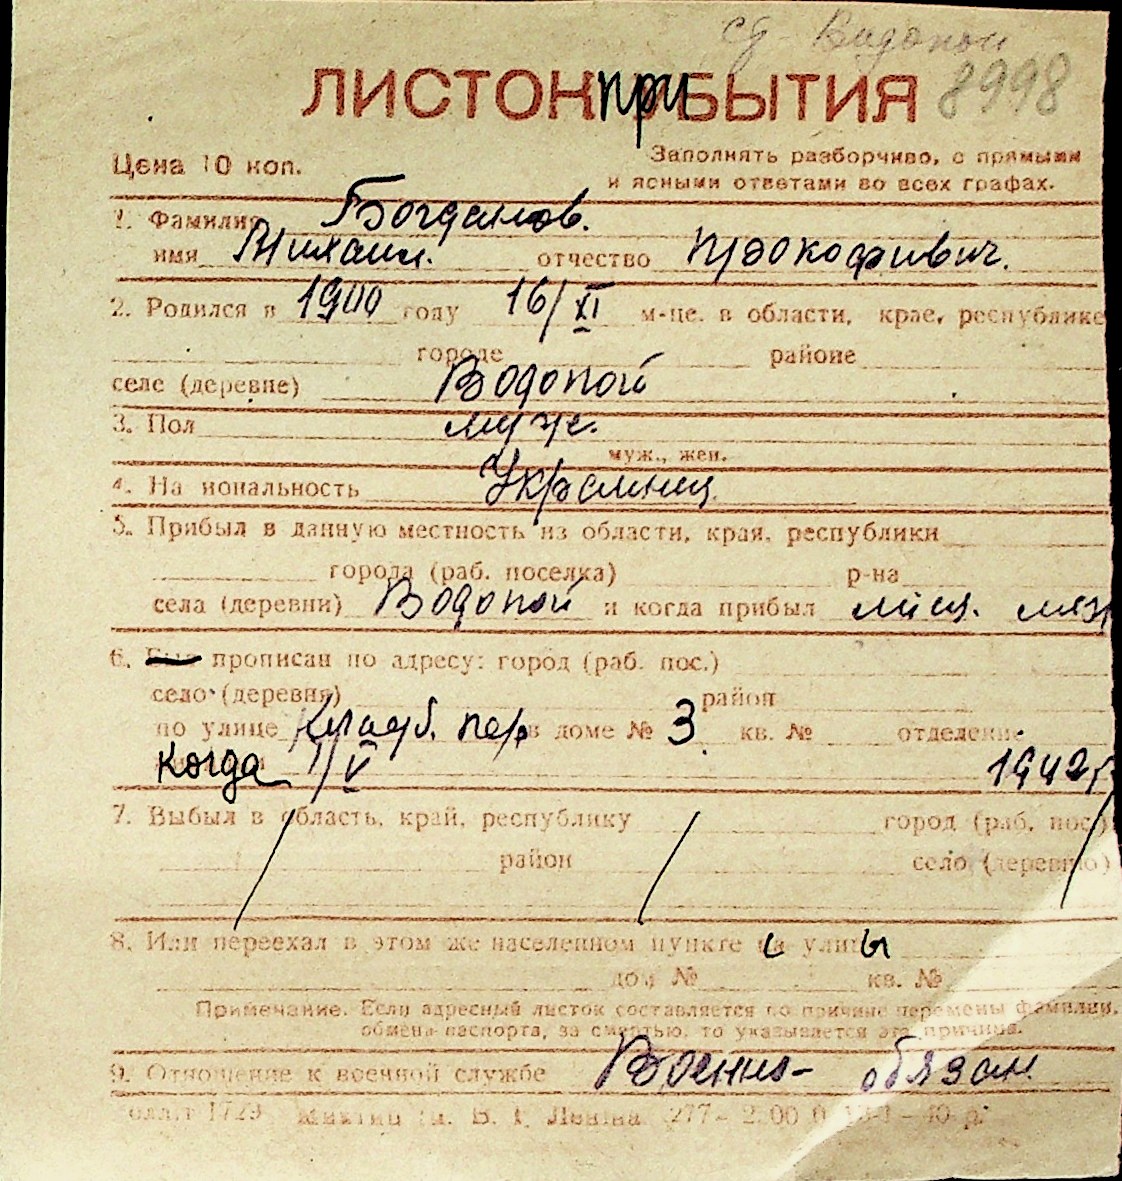 ст. Водопой
ЛИСТОК ПРИБЫТИЯ 8998
Цена 10 коп. Заполнять разборчиво, с прямыми
и ясными ответами во всех графах.
1. Фамилия Богданов.
имя Михаил. отчество Прокофиевич.
2. Родился в 1900 году 16/XI м-це. в области, крае, республике
городе районе
селе (деревне) Водопой
3. Пол муж.
муж., жен.
4. На иональность Украинец
5. Прибыл в данную местность из области, края, республики
города (раб. поселка) р-на
села (деревни) Водопой и когда прибыл
6. прописан по адресу: город (раб. пос.)
село (деревня) район
по улице Кладб. пер в доме № 3 кв. № отделение
когда V 1942г
7. Выбыл в область, край, республику город (раб. пос.)
район село (деревню)
8. Или переехал в этом же населенном пункте с улицы
дом № кв. №
Примечание. Если адресный листок составляется по причине перемены фамилии,
обмена паспорта, за смертью, то указывается эта причина.
9. Отношение к военной службе Военно-обязан.
1723 В. Ленина 277